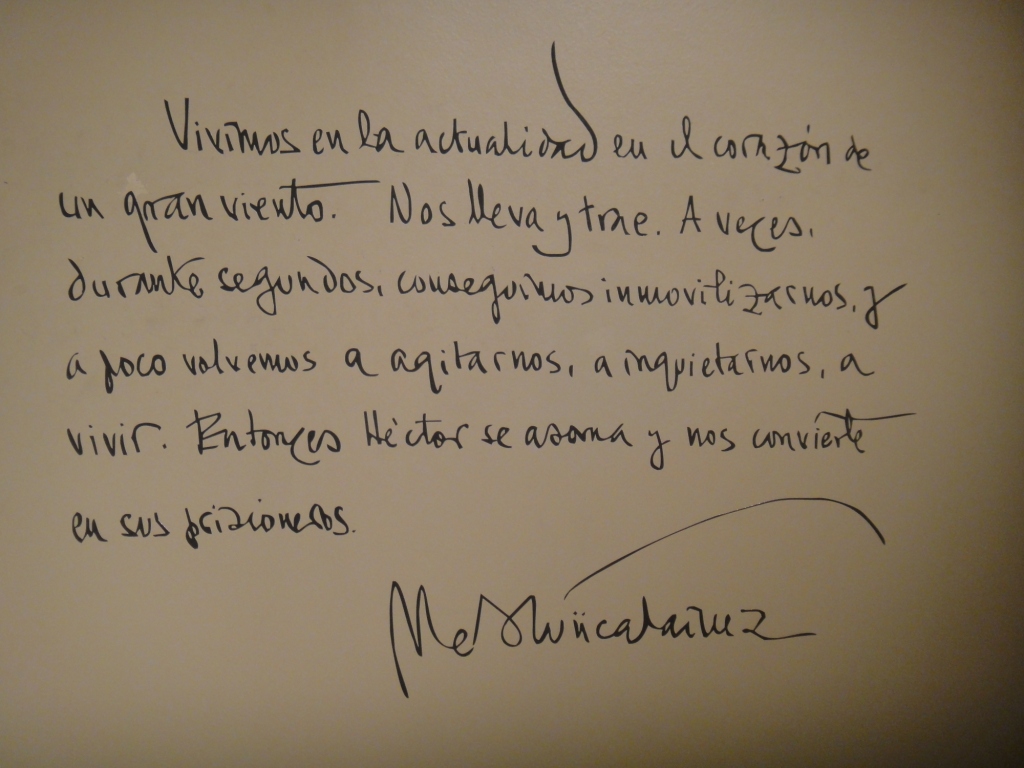 Vivimos en la actualidad en el corazón de
un gran viento. Nos lleva y trae. A veces,
durante segundos, conseguimos inmovilizarnos, y
a poco volvemos a agitarnos, a inquietarnos, a
vivir. Entonces Héctor se asoma y nos convierte
en sus prisioneros.